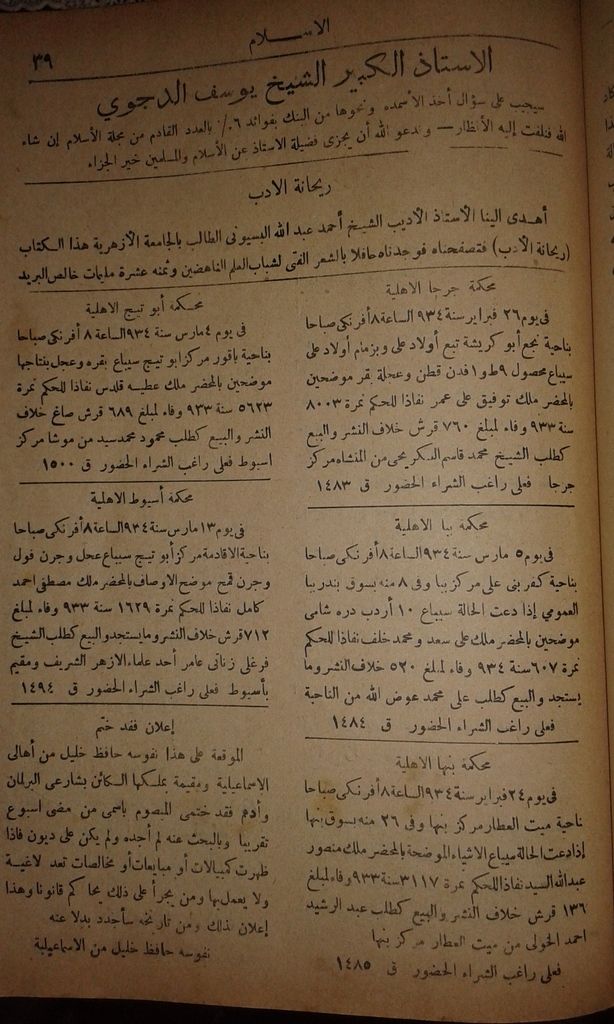 الاسلام
٣٩
الاستاذ الكبير الشيخ يوسف الدجوي
سيجيب على سؤال أخذ الأسمده ونحوها من البنك بفوائد ٦٪ بالعدد القادم من مجلة الأسلام إن شاء
الله فنلفت إليه الأنظار — وندعو الله أن يجزى فضيلة الاستاذ عن الأسلام والمسلمين خير الجزاء
ريحانة الادب
أهدى الينا الأستاذ الأديب الشيخ أحمد عبد الله البسيونى الطالب بالجامعة الأزهرية هذا الكتاب
(ريحانة الأدب) فتصفحناه فوجدناه حافلا بالشعر الفتى لشباب العلم الناهضين وثمنه عشرة مليمات خالص البريد
محكمة جرجا الاهلية
فى يوم ٢٦ فبراير سنة ٩٣٤ الساعة ٨ أفرنكى صباحا
بناحية نجع أبو كريشة تبع أولاد على وبزمام أولاد على
سيباع محصول ٩ط و١ فدن قطن وعجلة بقر موضحين
بالمحضر ملك توفيق على عمر نفاذا للحكم نمرة ٨٠٠٣
سنة ٩٣٣ وفاء لمبلغ ٧٦٠ قرش خلاف النشر والبيع
كطلب الشيخ محمد قاسم البكر يحى من المنشاه مركز
جرجا فعلى راغب الشراء الحضور ق ١٤٨٣
محكمة ببا الاهلية
فى يوم ٥ مارس سنة ٩٣٤ الساعة ٨ أفرنكى صباحا
بناحية كفر بنى على مركز ببا وفى ٨ منه بسوق بندر ببا
العمومي إذا دعت الحالة سيباع ١٠ أردب دره شامى
موضحين بالمحضر ملك على سعد ومحمد خلف نفاذا للحكم
نمرة ٦٠٧ سنة ٩٣٤ وفاء لمبلغ ٥٢٠ خلاف النشر وما
يستجد والبيع كطلب على محمد عوض الله من الناحية
فعلى راغب الشراء الحضور ق ١٤٨٤
محكمة بنها الاهلية
فى يوم ٢٤ فبراير سنة ٩٣٤ الساعة ٨ أفرنكى صباحا
ناحية ميت العطار مركز بنها وفى ٢٦ منه بسوق بنها
إذا دعت الحالة سيباع الاشياء الموضحة بالمحضر ملك منصور
عبدالله السيد نفاذا للحكم نمرة ٣١١٧ سنة ٩٣٣ وفاء لمبلغ
١٣٦ قرش خلاف النشر والبيع كطلب عبد الرشيد
احمد الخولى من ميت العطار مركز بنها
فعلى راغب الشراء الحضور ق ١٤٨٥
محكمة أبو تيج الاهلية
فى يوم ٤ مارس سنة ٩٣٤ الساعة ٨ أفرنكى صباحا
بناحية باقور مركز ابو تيج سيباع بقره وعجل بنتاجها
موضحين بالمحضر ملك عطيه قلدس نفاذا للحكم نمرة
٥٦٢٣ سنة ٩٣٣ وفاء لمبلغ ٦٨٩ قرش صاغ خلاف
النشر والبيع كطلب محمود محمد سيد من موشا مركز
اسيوط فعلى راغب الشراء الحضور ق ١٥٠٠
محكمة أسيوط الاهلية
فى يوم ١٣ مارس سنة ٩٣٤ الساعة ٨ أفرنكى صباحا
بناحية الاقادمة مركز أبو تيج سيباع عجل وجرن فول
وجرن قمح موضح الاوصاف بالمحضر ملك مصطفى احمد
كامل نفاذا للحكم نمرة ١٦٢٩ سنة ٩٣٣ وفاء لمبلغ
٧١٢ قرش خلاف النشر وما يستجد والبيع كطلب الشيخ
فرغلى زناتى عامر أحد علماء الازهر الشريف ومقيم
بأسيوط فعلى راغب الشراء الحضور ق ١٤٩٤
إعلان فقد ختم
الموقعة على هذا نفوسه حافظ خليل من أهالى
الاسماعيلية ومقيمة بملكها الكائن بشارعى البرلمان
وأدهم فقد ختمى المبصوم باسمى من مضى اسبوع
تقريبا وبالبحث عنه لم أجده ولم يكن على ديون فاذا
ظهرت كمبيالات أو مبايعات أو مخالصات تعد لاغية
ولا يعمل بها ومن يجرأ على ذلك يحاكم قانونا وهذا
إعلان لذلك ومن تاريخه سأحدد بدلا عنه
نفوسه حافظ خليل من الاسماعيلية